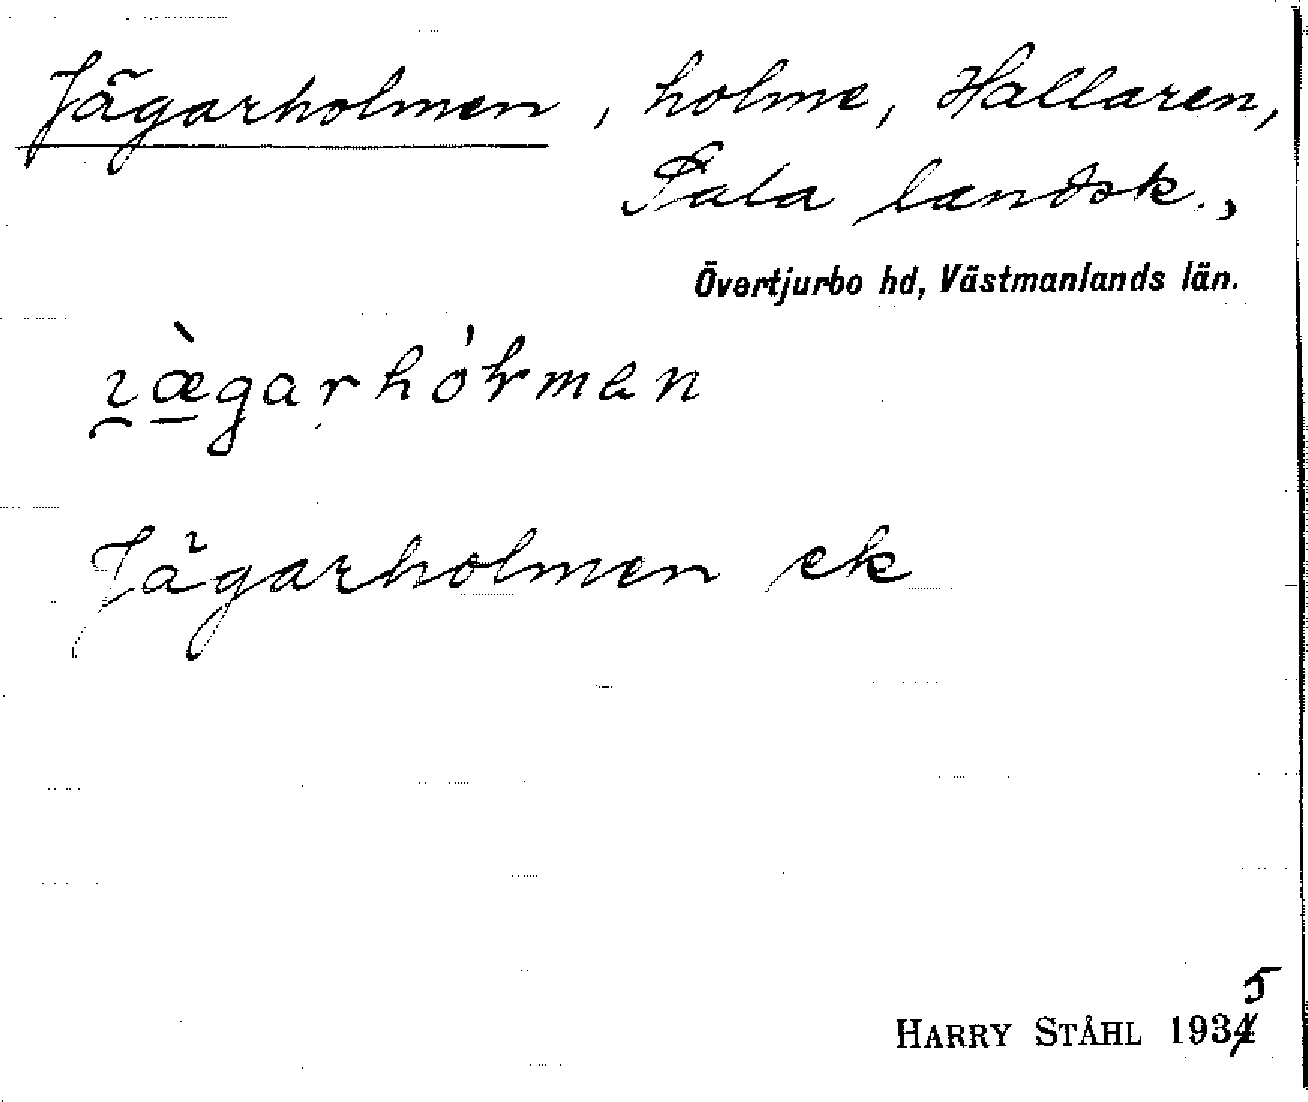 Jägarholmen, holme, Hallaren,
Sala landsk.,
Övertjurbo hd, Västmanlands län.
Jägarholmen ek
HARRY STÅHL 1935